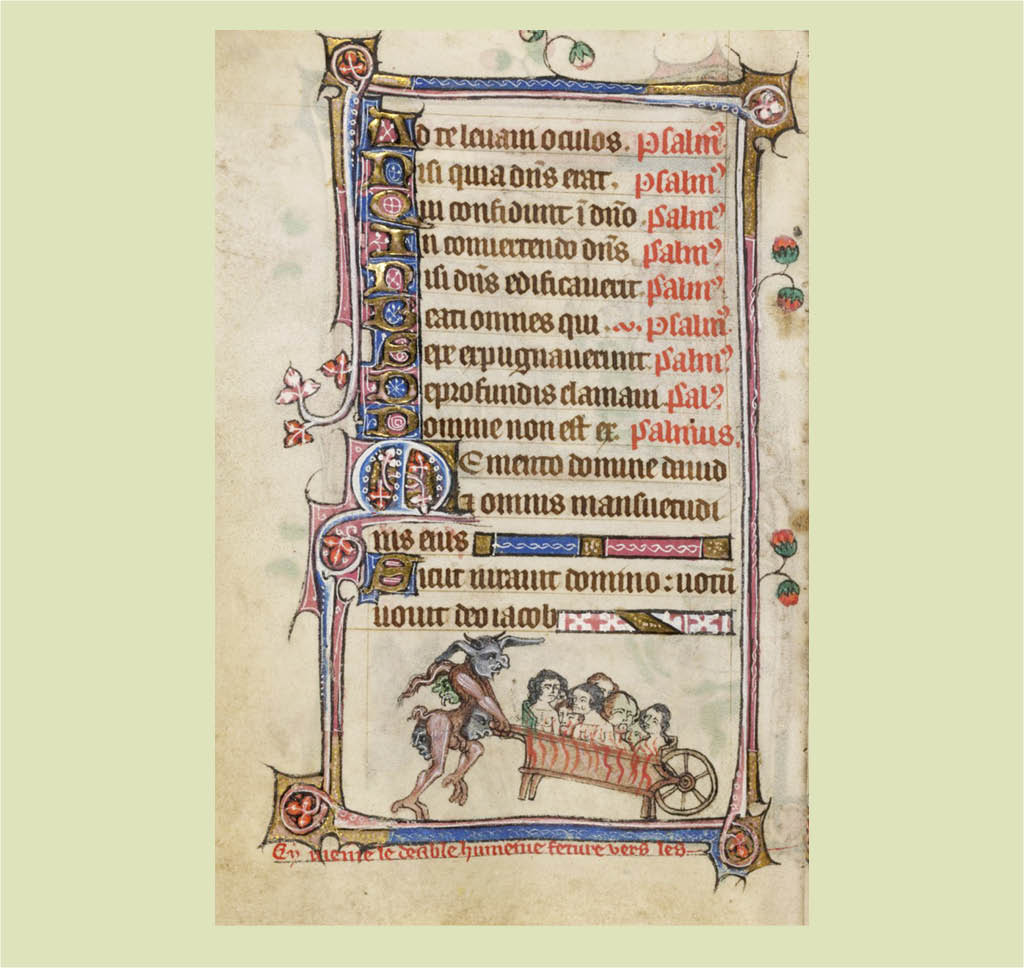 Ad te levavi oculos. psalm⁹.
Nisi quia dn̄s erat. psalm⁹
Qui confidunt ī dn̄o psalm⁹
In convertendo dn̄s psalm⁹
Nisi dn̄s edificaverit psalm⁹
Beati omnes qui psalm⁹.
Sepe expugnaverunt psalm⁹
De profundis clamavi psal⁹.
Domine non est ex. psalmus.
Memento domine david
omnis mansuetudi
nis eius
Sicut iuravit domino: votū
vovit deo iacob
Cy meine le deable humeine feture vers